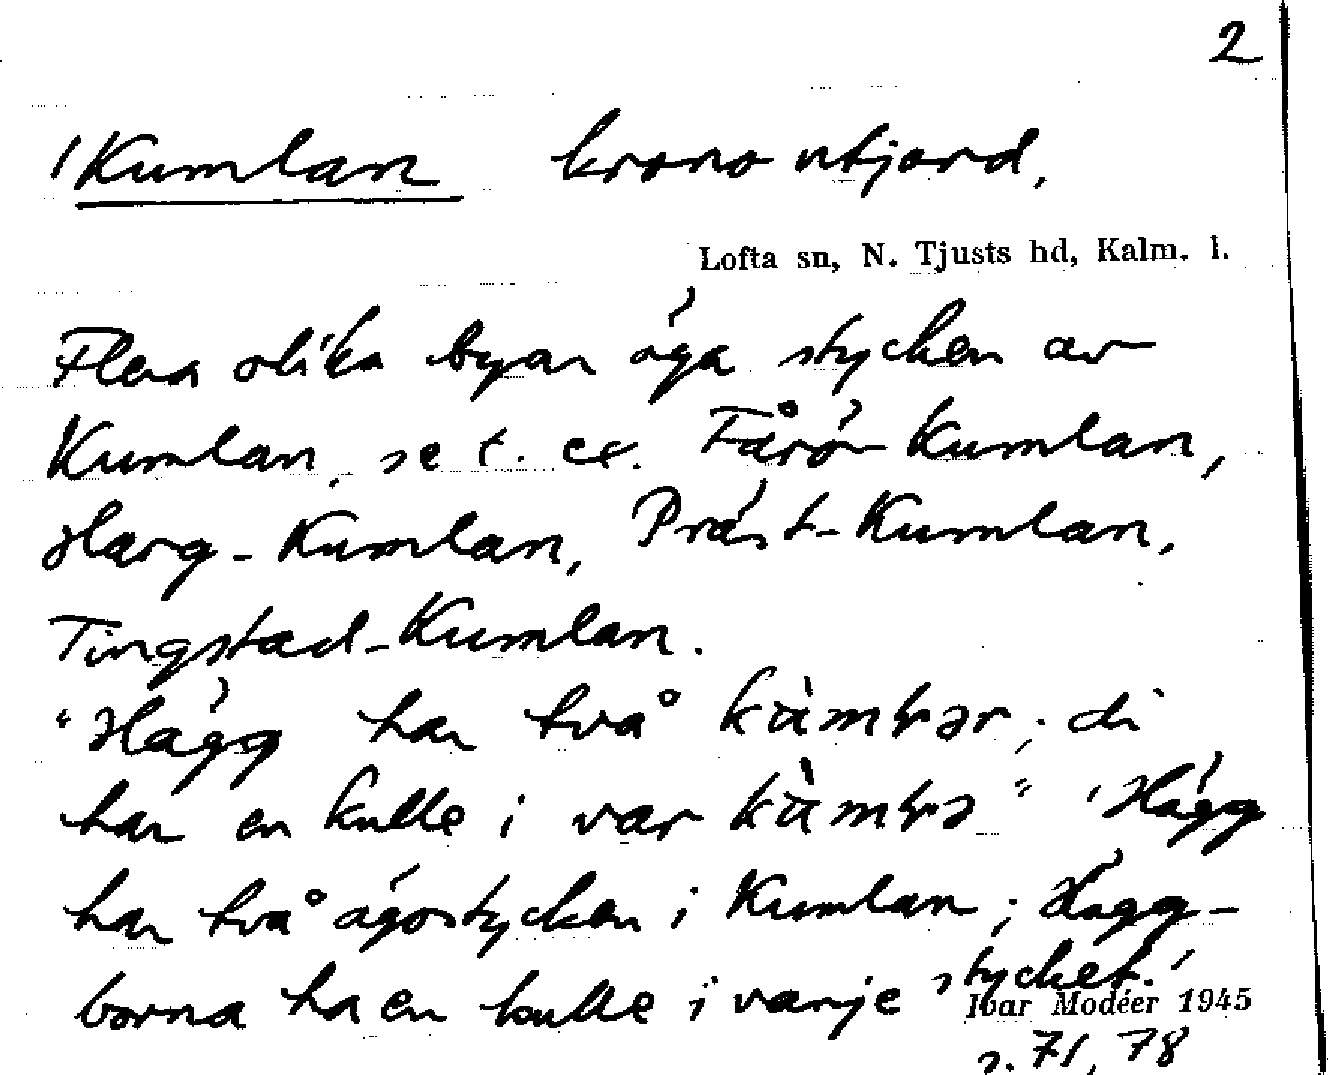 2
/Kumlan krono utjord,
Lofta sn, N. Tjusts hd, Kalm. l.
Flera olika byar äga stycken av
Kumlan, se t. ex. Fårö-Kumlan,
Harg-Kumlan, Präst-Kumlan,
Tingstad-Kumlan.
"Hägg har två kùmbər; di
har en kulle i var kùmbə" 'Hägg
har två ägostycken i Kumlan; Hägg-
borna ha en kulle i varje stycket.'
Ivar Modéer 1945
s. 71, 78